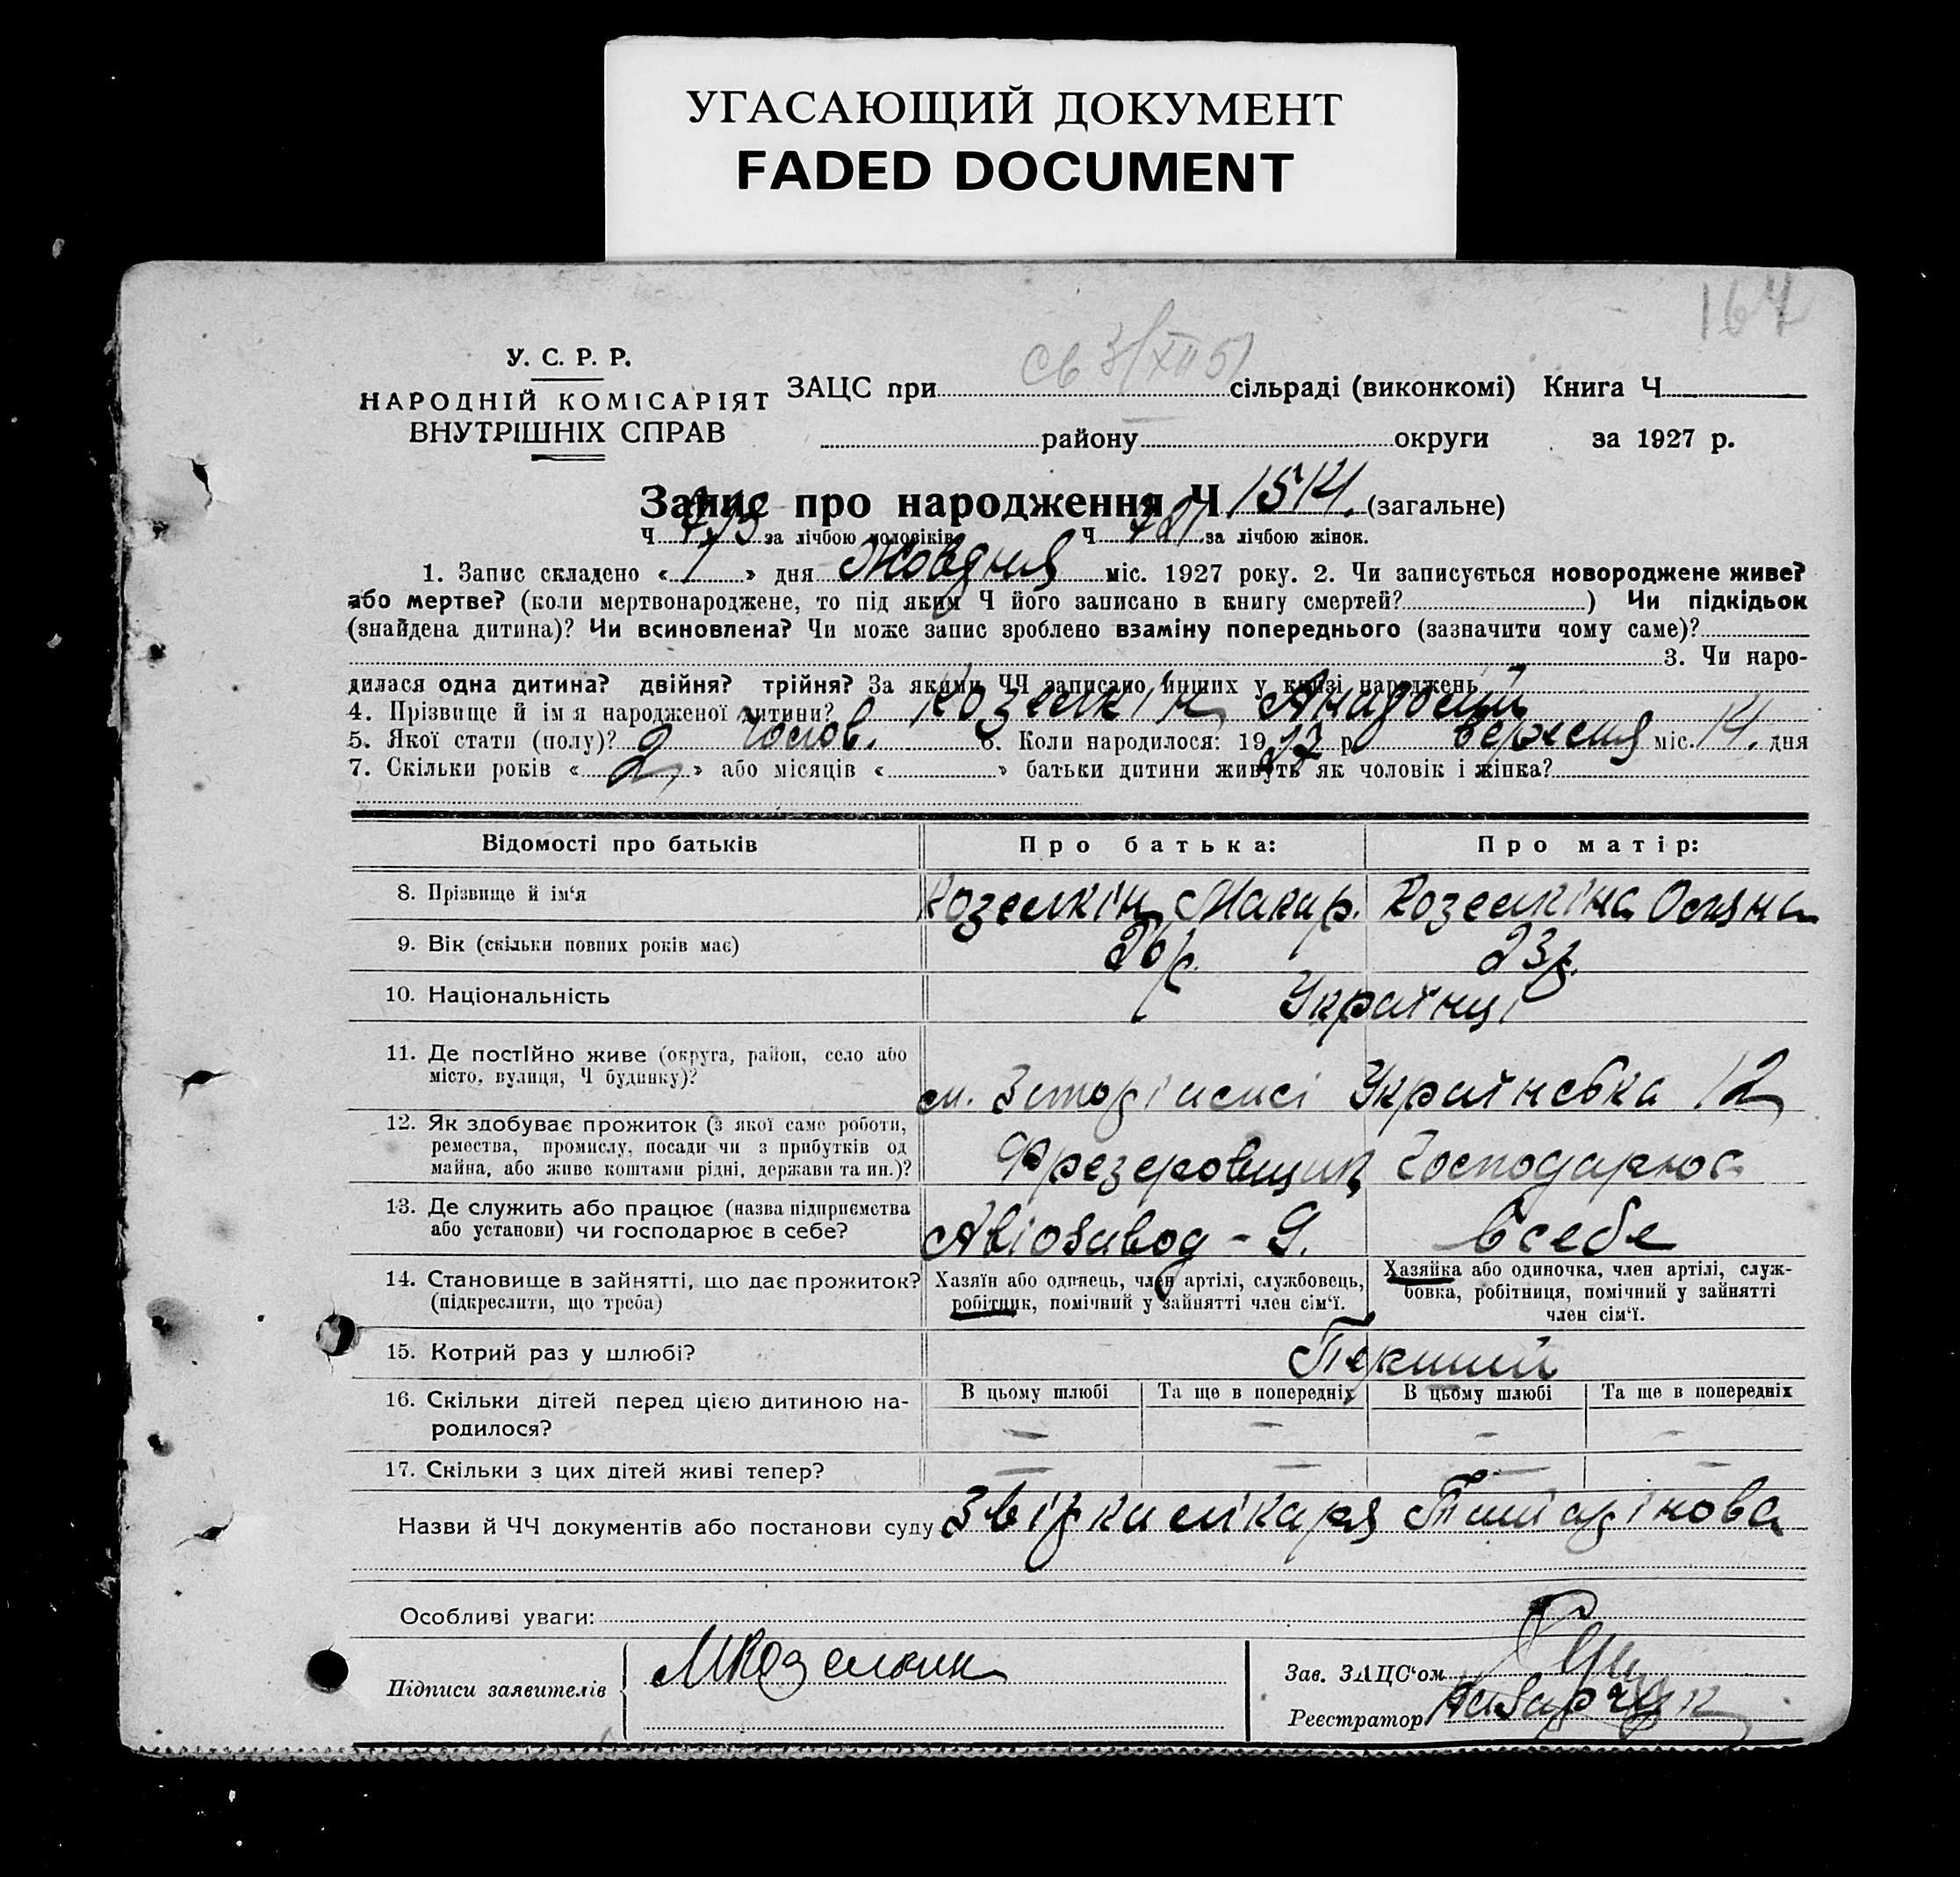 УГАСАЮЩИЙ ДОКУМЕНТ
FADED DOCUMENT
164
У. С. Р. Р.
НАРОДНІЙ КОМІСАРІЯТ
ВНУТРІШНІХ СПРАВ
ЗАЦС при сільраді (виконкомі) Книга Ч.
району округи за 1927 р.
Запис про народження Ч 1514. (загальне)
Ч 793 за лічбою чоловіків. Ч 721 за лічбою жінок.
1. Запис складено « 1 » дня Жовдня міс. 1927 року. 2. Чи записується новороджене живе?
або мертве? (коли мертвонароджене, то під яким Ч його записано в книгу смертей? ) Чи підкідьок
(знайдена дитина)? Чи всиновлена? Чи може запис зроблено взаміну попереднього (зазначити чому саме)?
3. Чи наро-
дилася одна дитина? двійня? трійня? За якими ЧЧ записано инших у книзі народжень
4. Прізвище й ім я народженої дитини? Козелкін Анадолій
5. Якої стати (полу)? чолов. 6. Коли народилося: 1927 р вересня міс. 14. дня
7. Скільки років « 2 » або місяців « » батьки дитини живуть як чоловік і жінка?
Відомості про батьків Про батька: Про матір:
8. Прізвище й ім‘я Козелкін Макар. Козелкіна Оксана
9. Вік (скільки повних років має) 26 р. 23 р.
10. Національність Українці
11. Де постійно живе (округа, район, село або
місто, вулиця, Ч будинку)? м. Запоріжжі Українська 12
12. Як здобуває прожиток (з якої саме роботи,
ремества, промислу, посади чи з прибутків од
майна, або живе коштами рідні, держави та ин.)? Фрезеровщик Господарює
13. Де служить або працює (назва підприємства
або установи) чи господарює в себе? Авіозавод - 9. в себе
14. Становище в зайнятті, що дає прожиток?
(підкреслити, що треба)
Хазяїн або одинець, член артілі, службовець,
робітник, помічний у зайнятті член сім‘ї.
Хазяйка або одиночка, член артілі, служ-
бовка, робітниця, помічний у зайнятті
член сім‘ї.
15. Котрий раз у шлюбі? Перший
16. Скільки дітей перед цією дитиною на-
родилося?
В цьому шлюбі Та ще в попередніх В цьому шлюбі Та ще в попередніх
— — — —
17. Скільки з цих дітей живі тепер? — — — —
Назви й ЧЧ документів або постанови суду Звізка лікаря
Особливі уваги:
Підписи заявителів МКозелкин
Зав. ЗАЦС‘ом
Реєстратор